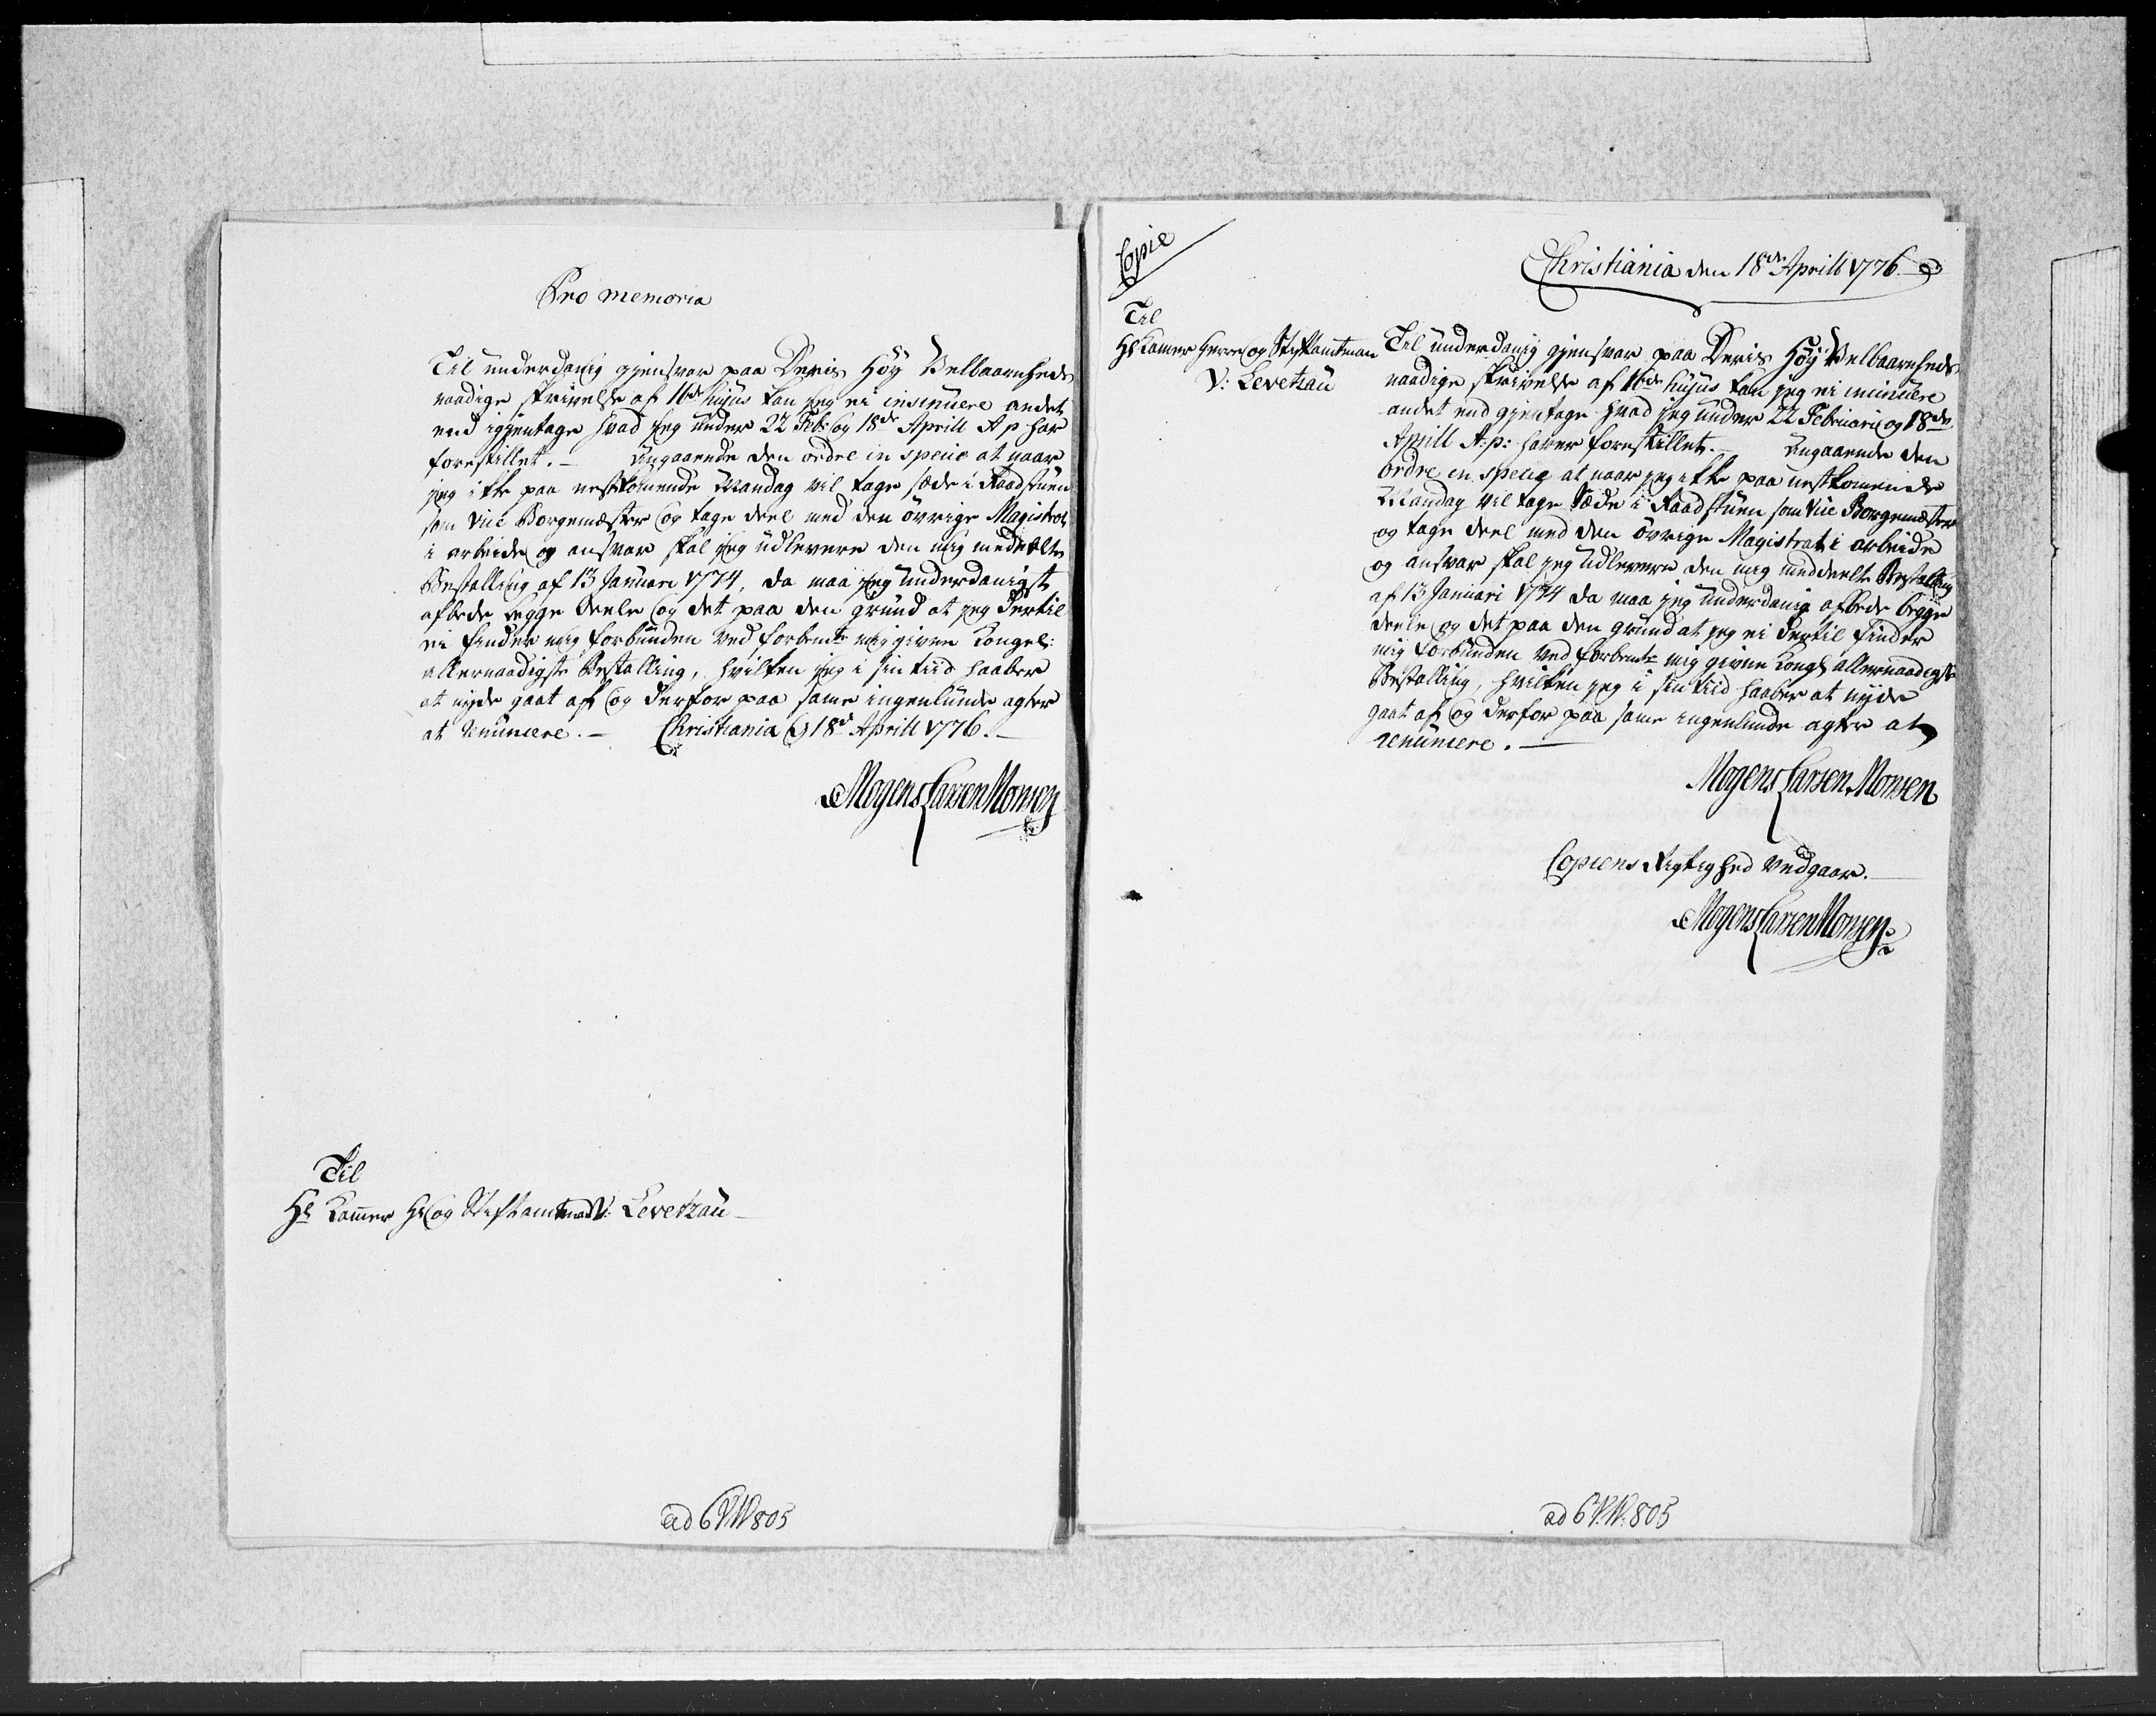 Pro memoria
Til underdanig gjensvar paa Deris Høy Velbaarenheds
naadige skrivelse af 16de hujus kan jeg ei insinuere andet
end igjentage hvad jeg under 22 Feb: og 18de Aprill A p har
forestillet. — Angaaende den ordre in specie at naar
jeg ikke paa nestkomende Mandag vil tage sæde i Raadstuen
som Vice Borgemester og tage deel med den övrige Magistrat
i arbeide og ansvar skal jeg udlevere den mig meddeelte
Bestalling af 13 Januari 1774, da maa jeg underdanigst
afbede begge deele og det paa den grund at jeg dertil
ei finder mig forbunden ved forbemte mig givne Kongel:
allernaadigste Bestalling, hvilken jeg i sin tiid haaber
at nyde gaat af og derfor paa same ingenlunde agter
at renuncere. — Christiania d 18d Aprill 1776. —
Mogens Larsen Monsen
Til
Hr Kammer Hr og Stiftamtmand V: Levetzau —
ad 6 V. N 805
Copie
Christiania den 18de Aprill 1776.
Til
Hr Kamer Herre og Stiftamtman
V: Levetzau
Til underdanig gjensvar paa Deris Høy Velbaarenheds
naadige skrivelse af 16de hujus kan jeg ei insinuere
andet end gjentage hvad jeg under 22 Februarii og 18de
Aprill A: p: haver forestillet. — Angaaende den
ordre in specie at naar jeg ikke paa nestkomende
Mandag vil tage Sæde i Raadstuen som Vice Borgemester
og tage deel med den övrige Magistrat i arbeide
og ansvar skal jeg udlevere den mig meddeelte Bestalling
af 13 Januari 1774 da maa jeg underdanig afbede begge
deele og det paa den grund at jeg ei dertil finder
mig forbunden ved forbemte mig givne Kongl allernaadigste
Bestalling, hvilken jeg i sin tiid haaber at nyde
gaat af og derfor paa same ingenlunde agter at
renuncere. —
Mogens Larsen Monsen
Copiens Rigtighed vedgaar. —
Mogens Larsen Monsen
ad 6 V. N. 805